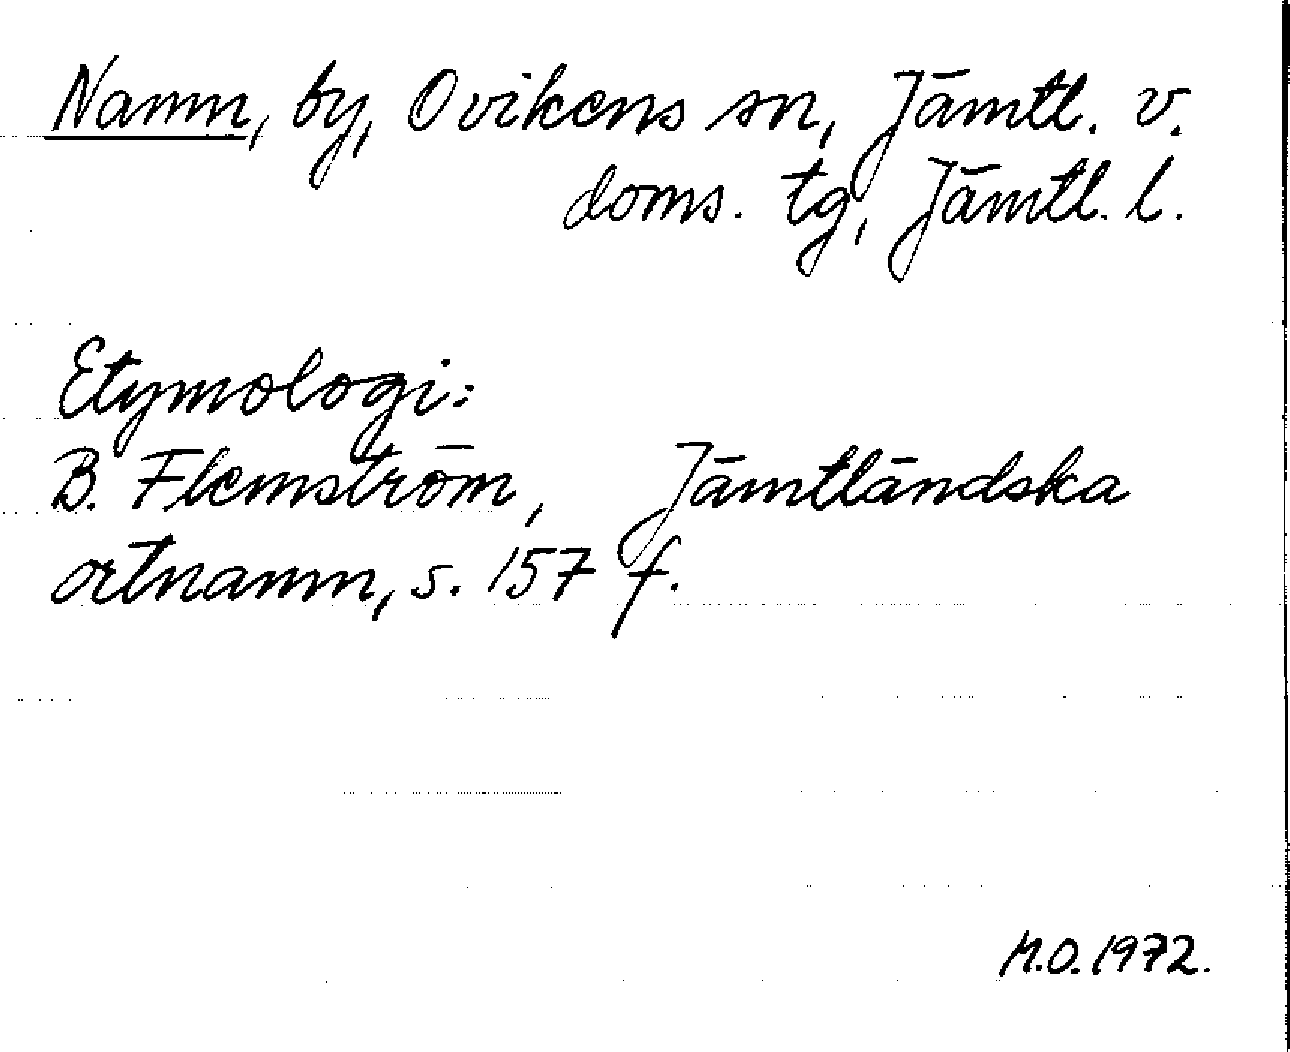 Namn, by, Ovikens sn, Jämtl. v.
doms. tg, Jämtl. l.
Etymologi:
B. Flemström, Jämtländska
ortnamn, s. 157 f.
M.O. 1972.